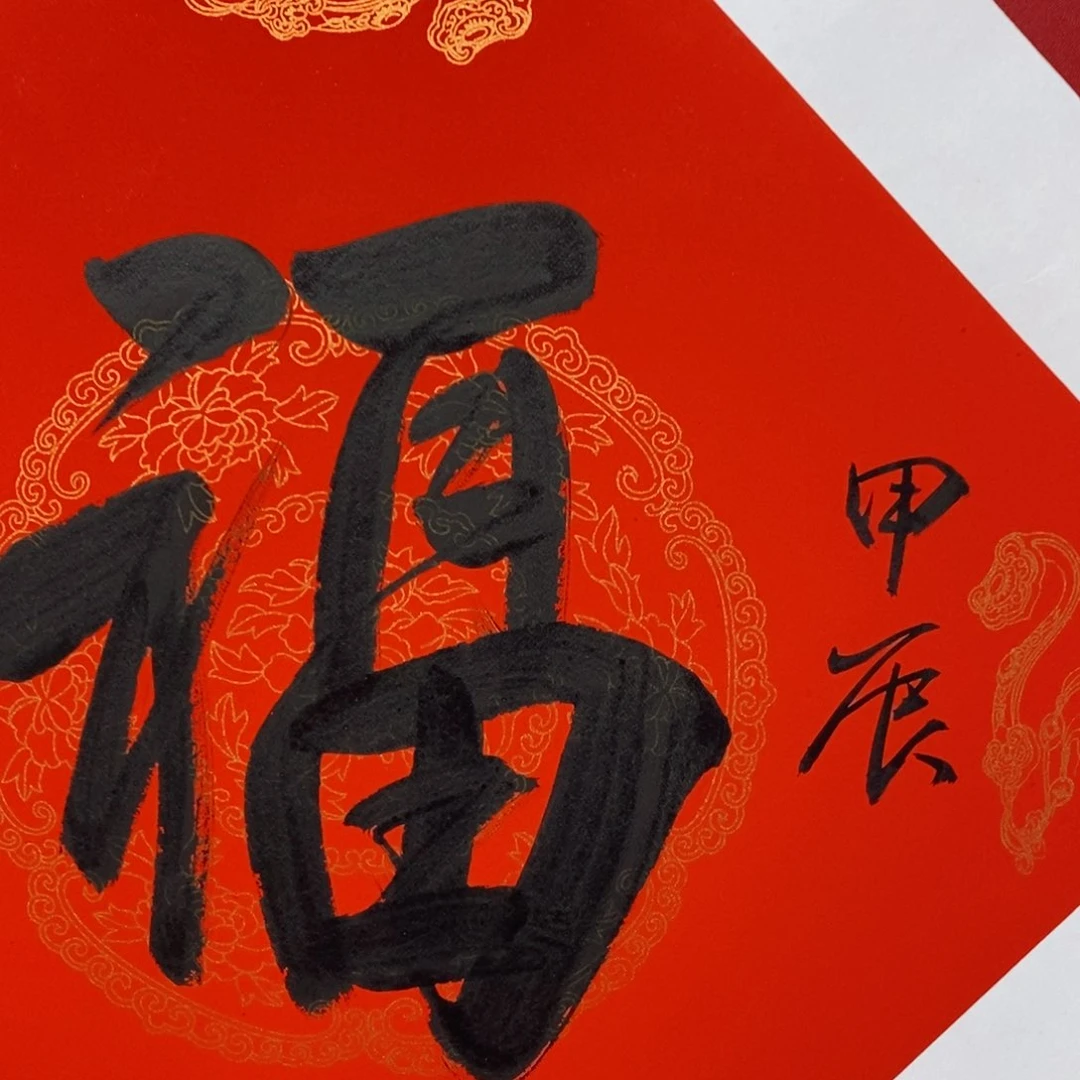 福
甲辰